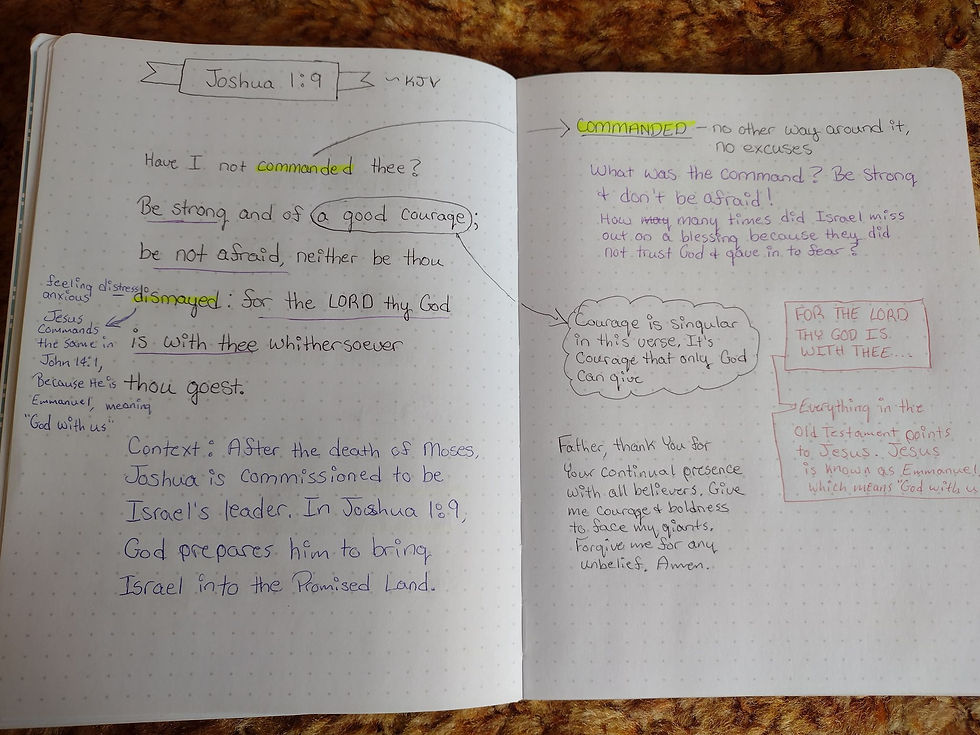 Joshua 1:9 ~ KJV
Have I not commanded thee?
Be strong and of a good courage;
be not afraid, neither be thou
dismayed: for the LORD thy God
is with thee whithersoever
thou goest.
feeling distress,
anxious –
Jesus
Commands
the same in
John 14:1,
Because He is
Emmanuel, meaning
"God with us"
Context: After the death of Moses,
Joshua is commissioned to be
Israel's leader. In Joshua 1:9,
God prepares him to bring
Israel into the Promised Land.
COMMANDED – no other way around it,
no excuses
What was the command? Be strong
& don't be afraid!
How may many times did Israel miss
out on a blessing because they did
not trust God & gave in to fear?
Courage is singular
in this verse. It's
Courage that only God
can give
FOR THE LORD
THY GOD IS
WITH THEE...
Everything in the
Old Testament points
to Jesus. Jesus
is known as Emmanuel
which means "God with u
Father, thank You for
Your continual presence
with all believers. Give
me courage & boldness
to face my giants.
Forgive me for any
unbelief. Amen.